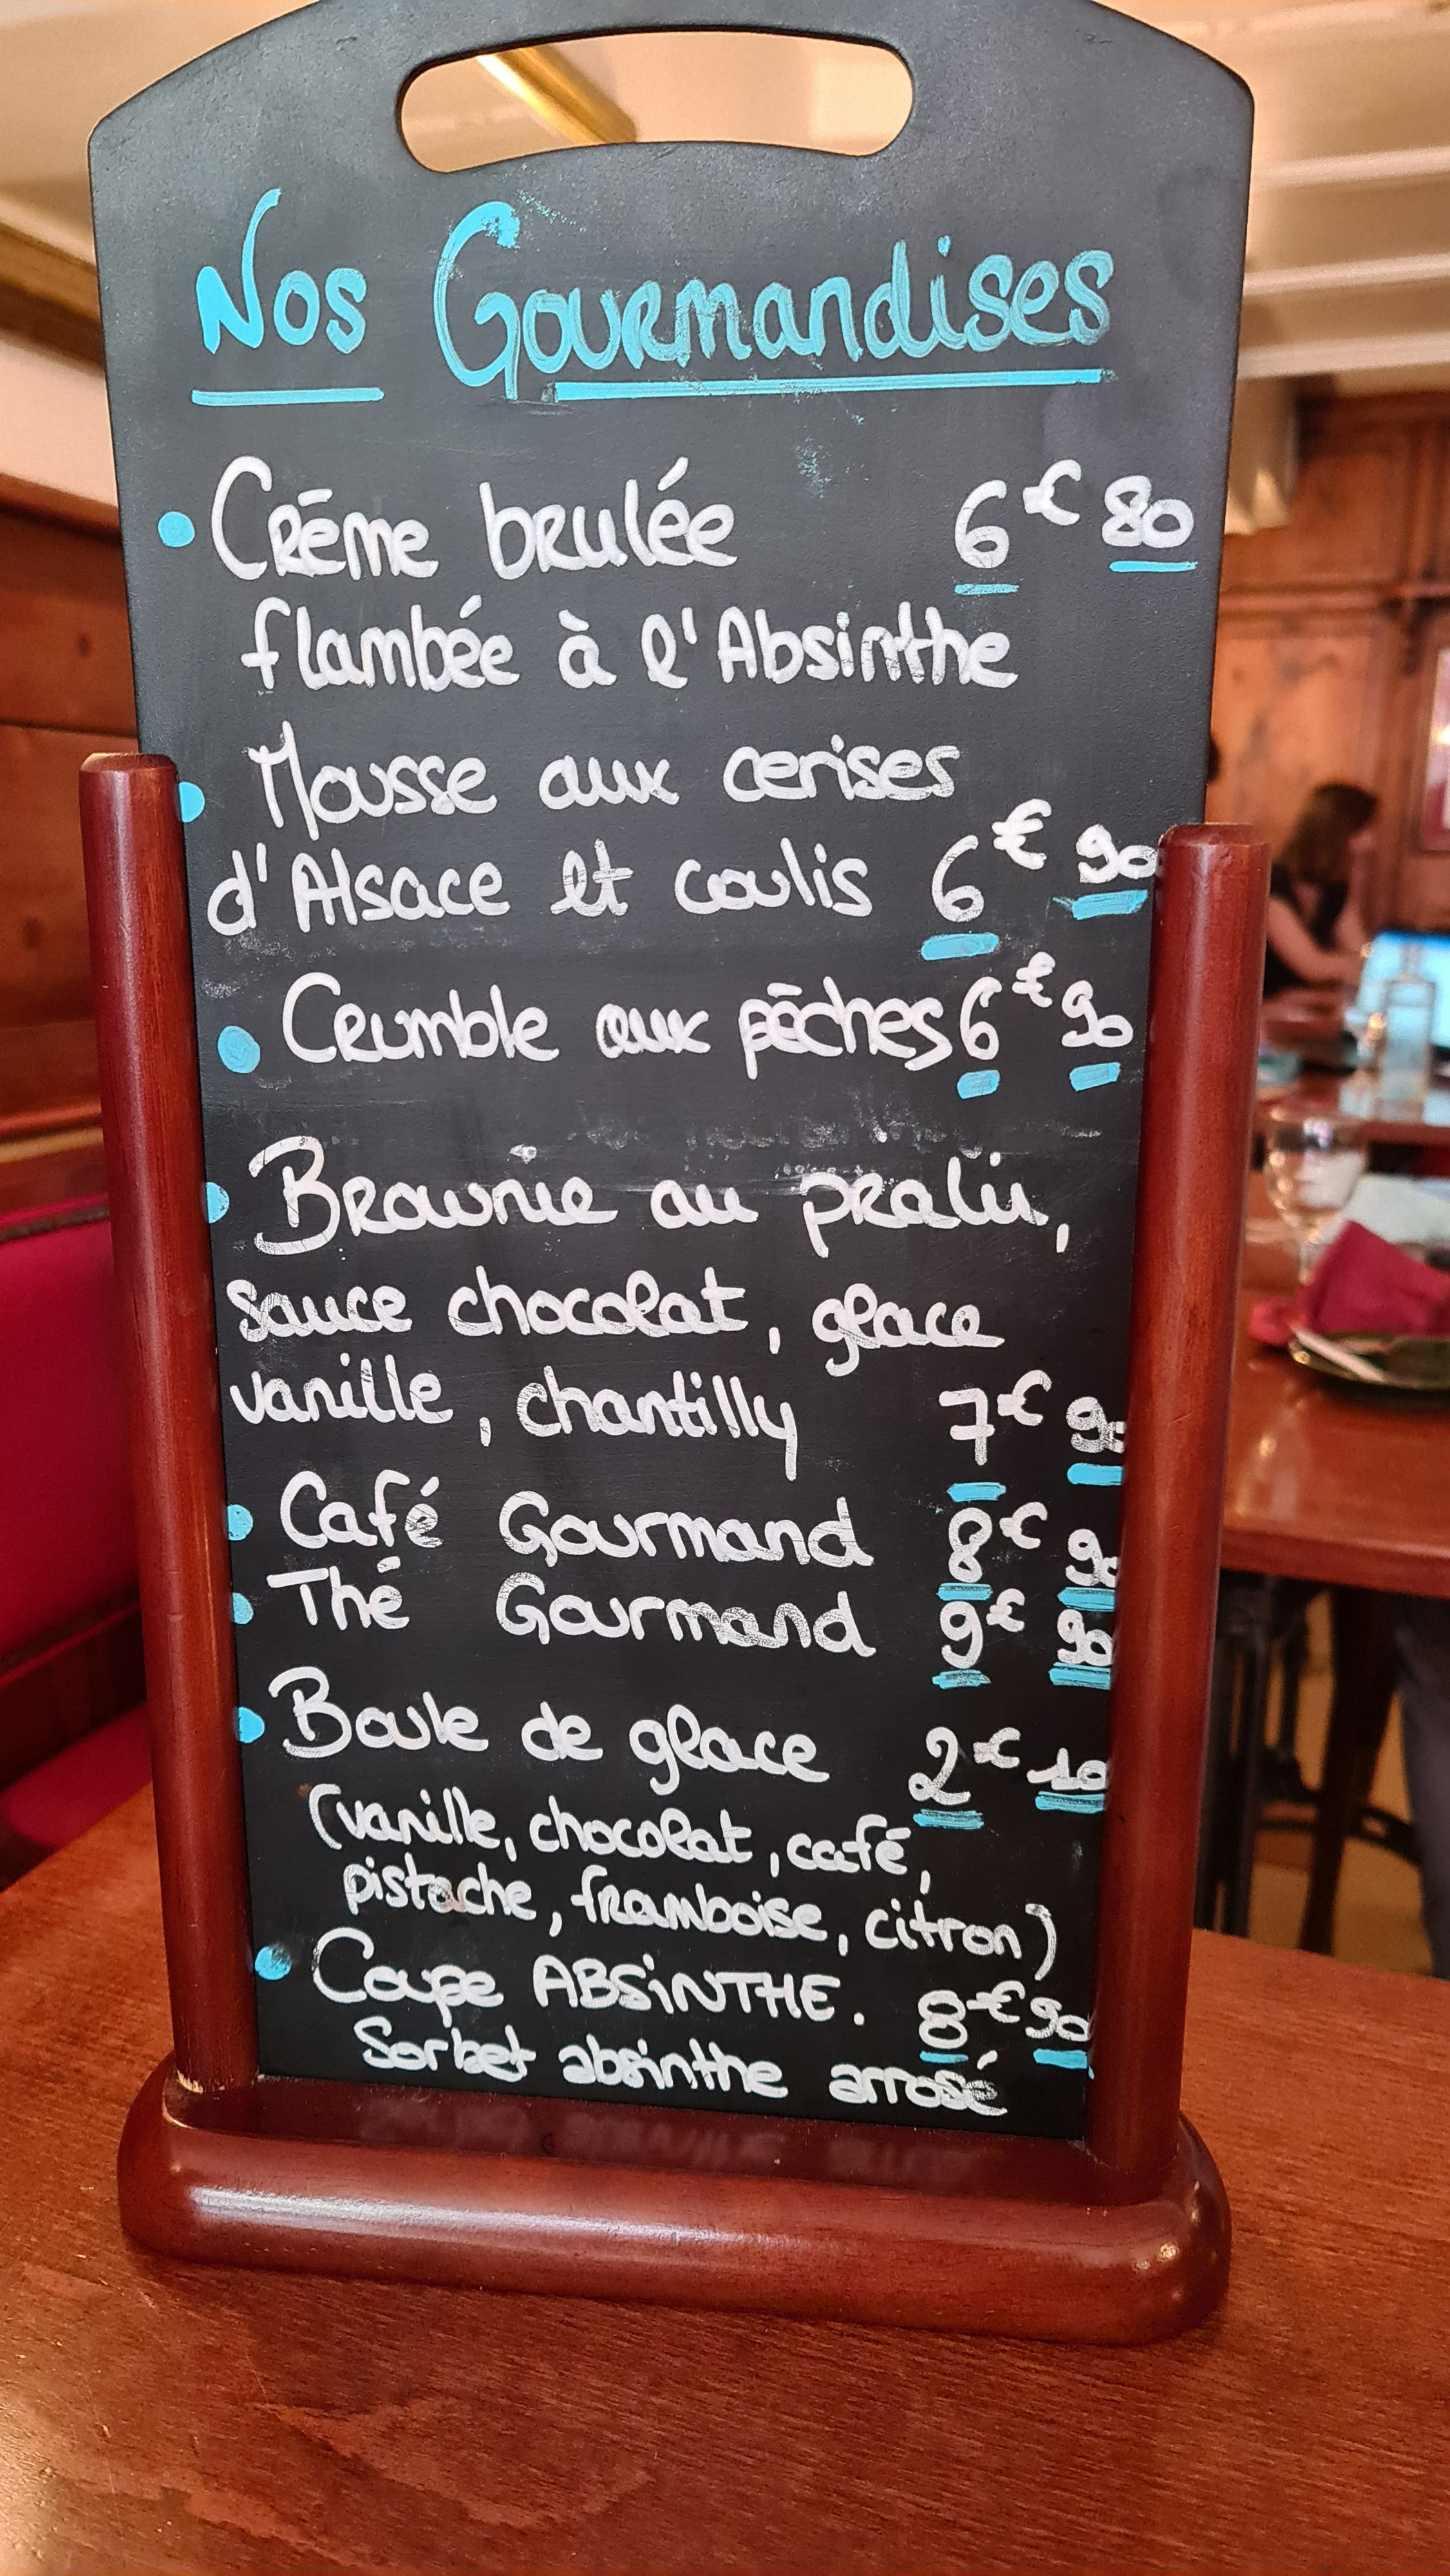 Nos Gourmandises
Crēme brulée 6€80
flambée à l'Absinthe
Mousse aux cerises
d'Alsace et coulis 6€90
Crumble aux pēches 6€90
Brownie au pralin,
sauce chocolat, glace
vanille, chantilly 7€90
Café Gourmand 8€90
Thé Gourmand 9€90
Boule de glace 2€10
(vanille, chocolat, café,
pistache, framboise, citron)
Coupe ABSiNTHE. 8€90
Sorbet absinthe arrosé